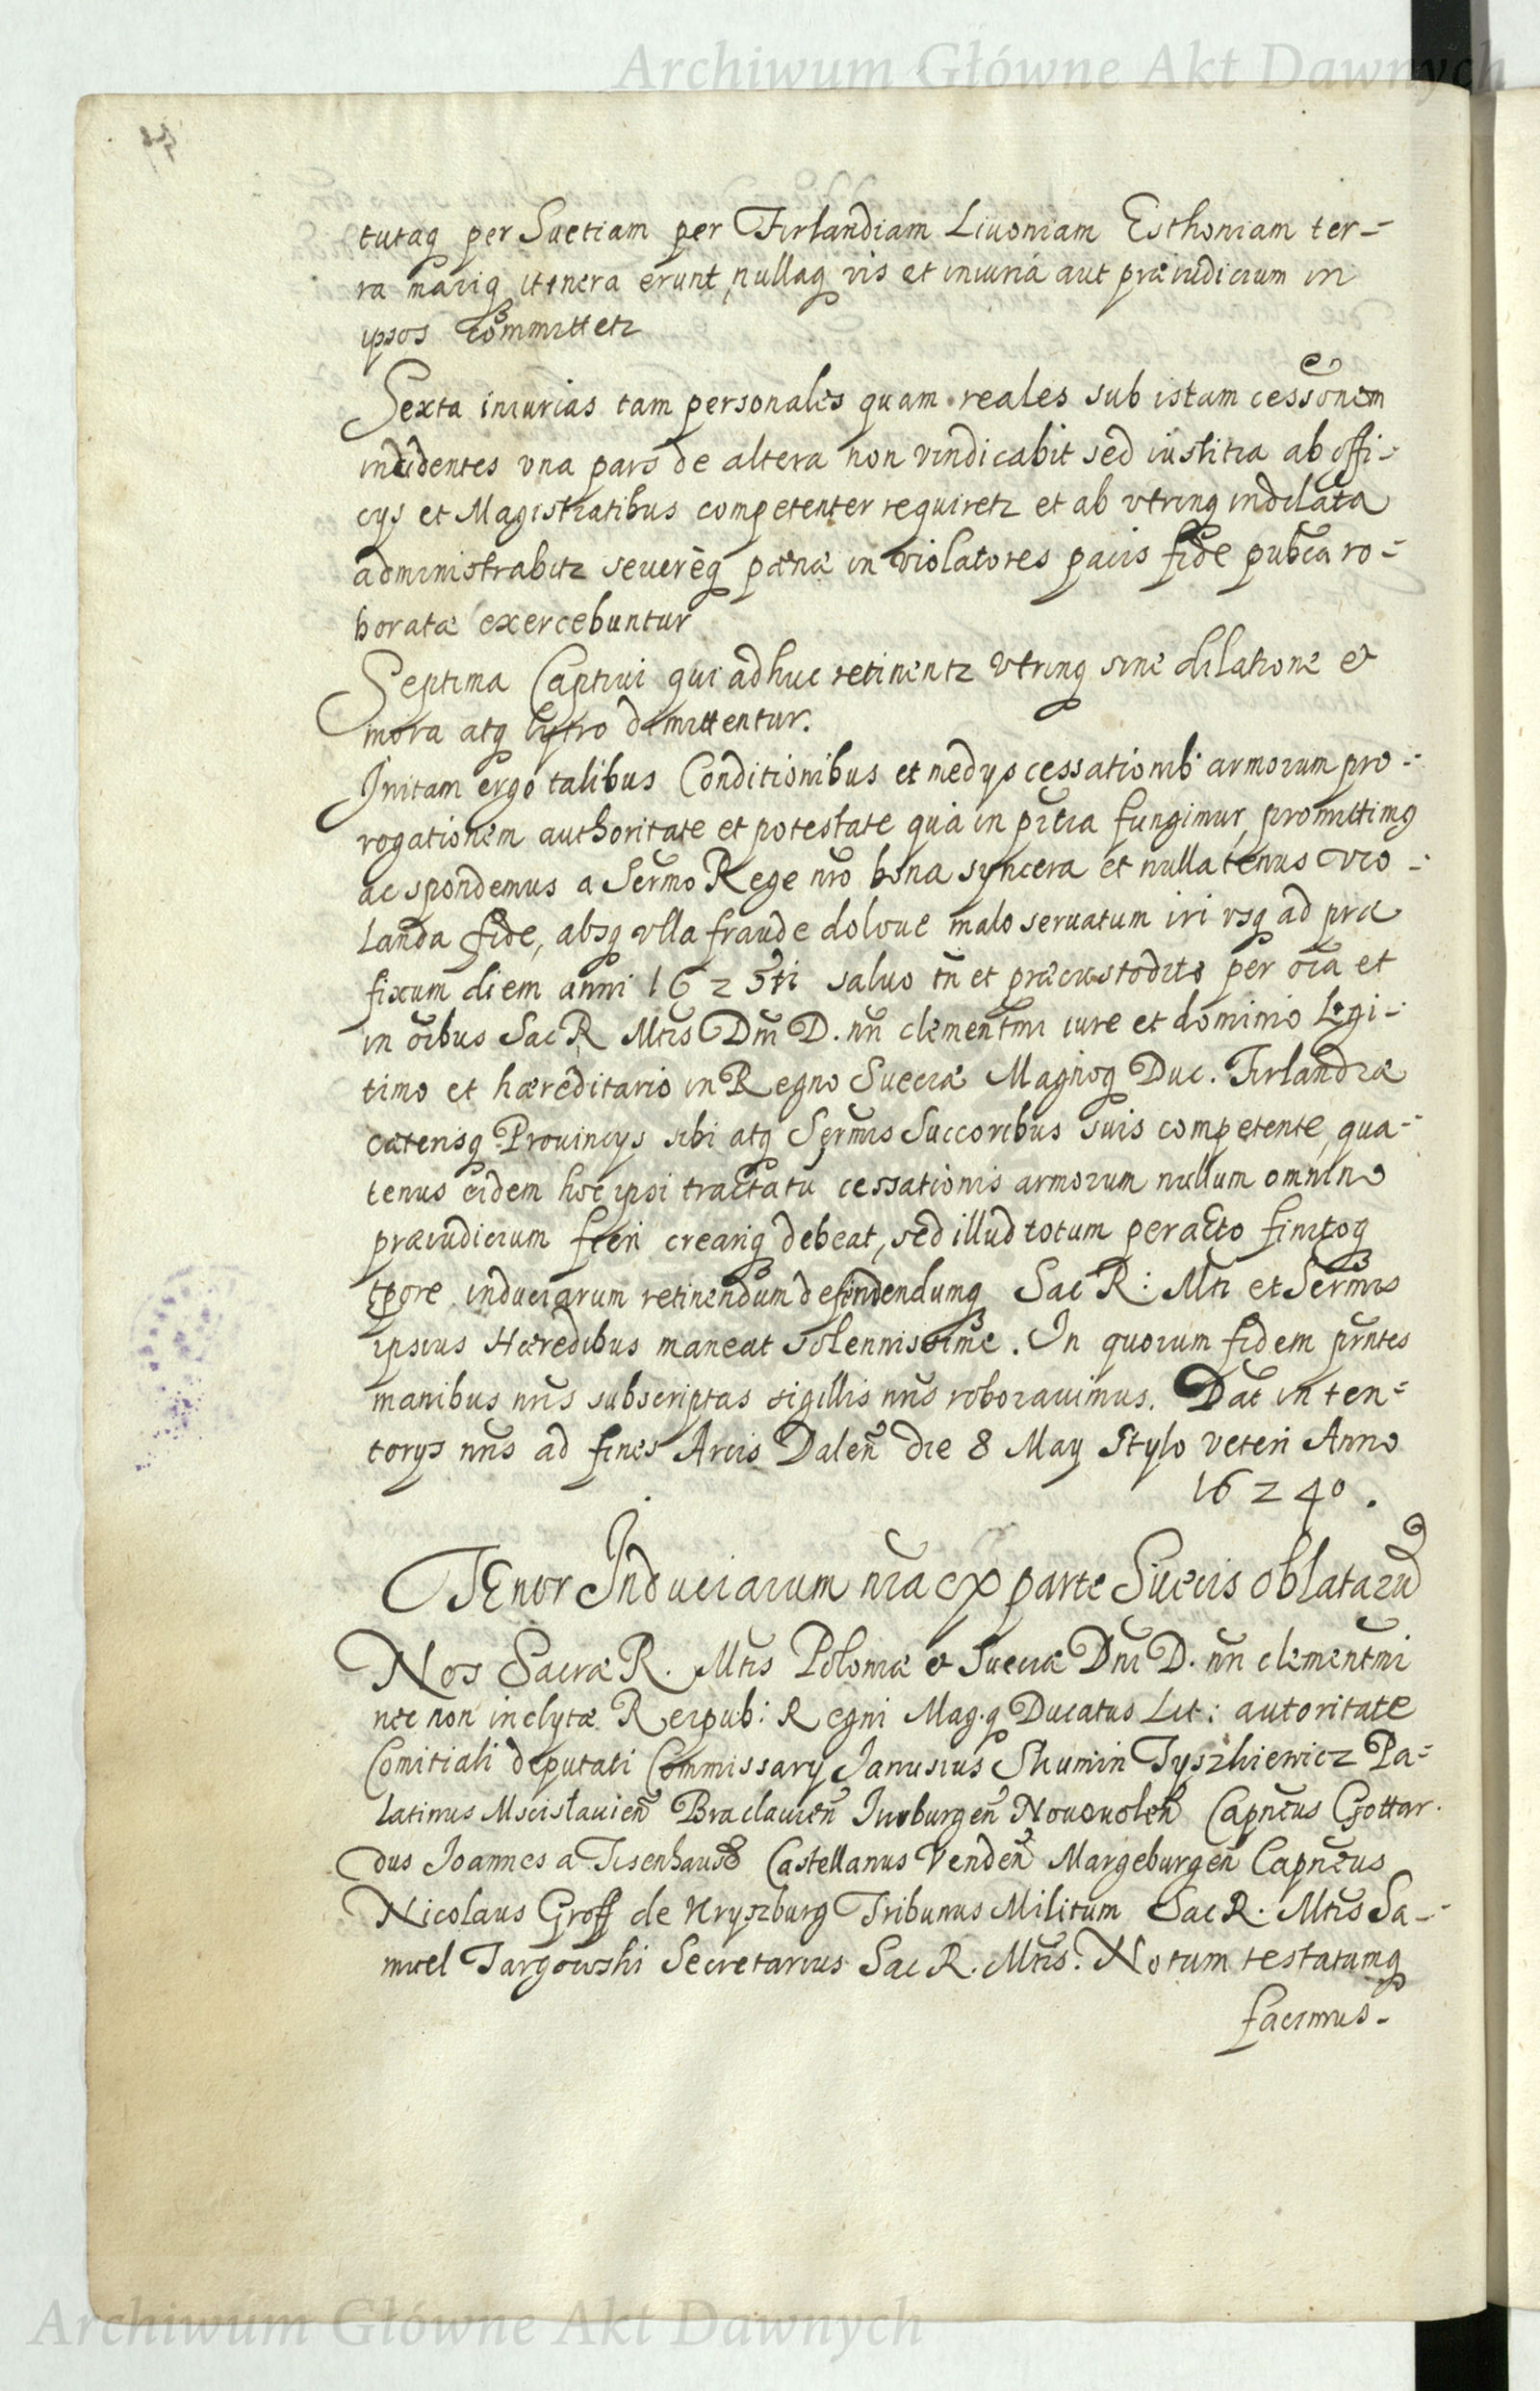 Archiwum Główne Akt Dawnych
tutaq per Suetiam per Firlandiam Liuoniam Esthoniam ter=
ra mariq itinera erunt, nullaq vis et iniuria aut præiudicium in
ipsos committetr
Sexta iniurias tam personales quam reales sub istam cessonem
incidentes vna pars de altera non vindicabit sed iustitia ab offi=
cys et Magistratibus competenter requiretr et ab vtrinq indilata
administrabitr seuerèq pænæ in violatores pacis fide pubca ro=
boratæ exercebuntur
Septima Captiui qui adhuc retinentr vtrinq sine dilatione et
mora atq lytro dimittentur.
Initam ergo talibus Conditionibus et medys cessationib armorum pro=
rogationem authoritate et potestate quà in prtia fungimur, promittimq
ac spondemus a Sermo Rege nro bona syncera et nullatenus vio=
landa fide, absq vlla fraude doloue malo seruatum iri vsq ad præ
fixum diem anni 1625ti saluo tn et præcustodito per oia et
in oibus Sac R Mtis Dni D. nri clementmi iure et dominio legi=
timo et hæreditario in Regno Sueciæ Magnoq Duc. Firlandiæ
cæterisq Prouincys sibi atq Sermis Succoribus suis competente, qua=
tenus eidem hoc ipsi tractatu cessationis armorum nullum omnino
præiudicium fieri creariq debeat, sed illud totum peracto finitoq
tpore induciarum retinendum defendendumq Sac R: Mti et Sermis
ipsius Hæredibus maneat solennissime. In quorum fidem prntes
manibus nris subscriptas sigillis nris roborauimus. Dat in ten=
torys nris ad fines Arcis Dalen die 8 May Stylo veteri Anno
1624o.
TEnor Induciarum nra ex parte Suecis oblatarum
Nos Sacræ R. Mtis Poloniæ et Sueciæ Dni D. nri clementmi
nec non inclytæ Reipub: Regni Mag.q Ducatus Lit: autoritate
Comitiali deputati Commissary Janusius Skumin Tyszkiewicz Pa=
latinus Mscislauien Braclauien Jurburgen Nououolen Capneus Gottar.
dus Joannes a Tisenhaus Castellanus Venden Margeburgen Capneus
Nicolaus Groff de Kryszburg Tribunus Militum Sac R. Mtis Sa=
muel Targowski Secretarius Sac R. Mtis. Notum testatumq
facimus-
Archiwum Główne Akt Dawnych